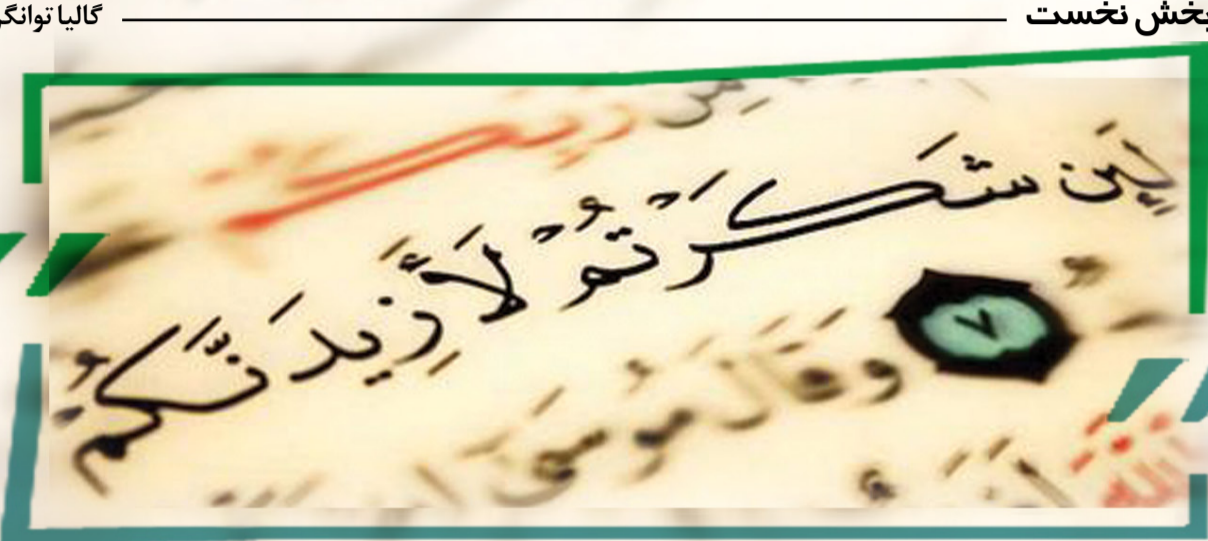 بخش نخست گالیا توانگر
مِن
لَئِن شَكَرْتُمْ لَأَزِيدَنَّكُمْ
٧
وَقَالَ مُوسَىٰ
الله